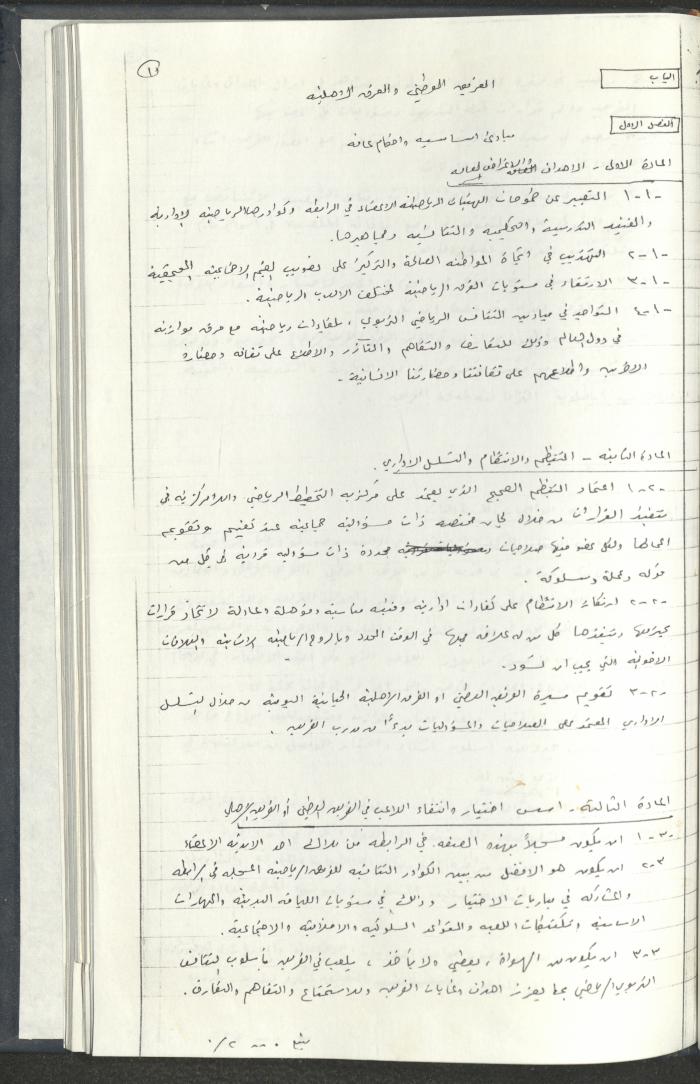 ١
الباب
الفريق الوطني والفرق الاهلية
الفصل الاول
مبادئ اساسية واحكام عامة
المادة الاولى - الاهداف والاغراض العامة
١-١- التعبير عن طموحات الهيئات الرياضية الاعضاء في الرابطة وكوادرها الرياضية الادارية
والفنية التدريبية والتحكيمية والتنافسية وجماهيرها.
١-٢- التهذيب في اتجاه المواطنة الصالحة والتركيز على تصويب القيم الاجتماعية الحقيقية
١-٣- الارتقاء في مستويات الفرق الرياضية لمختلف الالعاب الرياضية.
١-٤- التواجد في ميادين التنافس الرياضي التربوي، بلقاءات رياضية مع فرق موازية
في دول العالم وذلك للتعارف والتفاهم والتآزر والاطلاع على ثقافة وحضارة
الآخرين واطلاعهم على ثقافتنا وحضارتنا الانسانية.
المادة الثانية - التنظيم والانتظام والتسلسل الاداري.
٢-١- اعتماد التنظيم الصحيح الذي يعتمد على مركزية التخطيط الرياضي واللامركزية في
تنفيذ القرارات من خلال لجان مختصة ذات مسؤولية جماعية عند تقييم وتقويم
اعمالها ولكل عضو فيها صلاحيات محددة ذات مسؤولية فردية لكل من
قوله وعمله ومسلوكه.
٢-٢- ارتكاز الانتظام على كفاءات ادارية وفنية مناسبة ومؤهلة وعادلة لاتخاذ قرارات
كل من له علاقة بها في الوقت المحدد وبالروح الرياضية الانسانية والعلاقات
الاخوية التي يجب ان تسود.
٢-٣- تقويم مسيرة الفريق الوطني او الفرق الاهلية الحياتية اليومية من خلال التسلسل
الاداري المعتمد على الصلاحيات والمسؤوليات بدءًا من مدرب الفريق.
المادة الثالثة - اسس اختيار وانتقاء اللاعب في الفريق الوطني أو الفريق الاهلي
٣-١- ان يكون مسجلاً بهذه الصفة في الرابطة من خلال احد الاندية الاعضاء
٣-٢ ان يكون هو الافضل من بين الكوادر التنافسية للفرق الرياضية المسجلة في الرابطة
والمشاركة في مباريات الاختيار وذلك في مستويات اللياقة البدنية والمهارات
الاساسية وتكتيكات اللعبة والقواعد السلوكية والاخلاقية والاجتماعية.
٣-٣ ان يكون من الهواة، يعطي ولا يأخذ، يلعب في الفريق بأسلوب التنافس
التربوي الرياضي بما يعزز اهداف وغايات الفريق وللاستمتاع والتفاهم والتعارف.
يتبع ... ٢/.